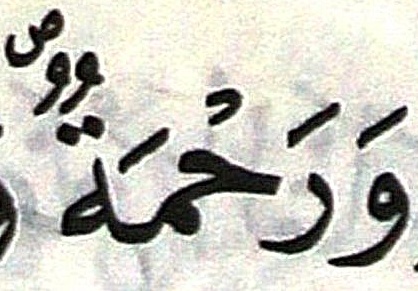 وَرَحْمَةٌ ۖ